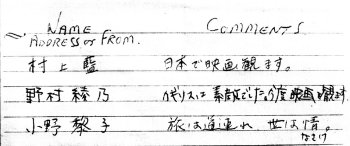 NAME COMMENTS
ADDRESS or FROM.
村上藍 日本で映画観ます。
野村綾乃 イギリスは素敵でした。今度映画観ます
小野黎子 旅は道連れ、世は情。
なさけ